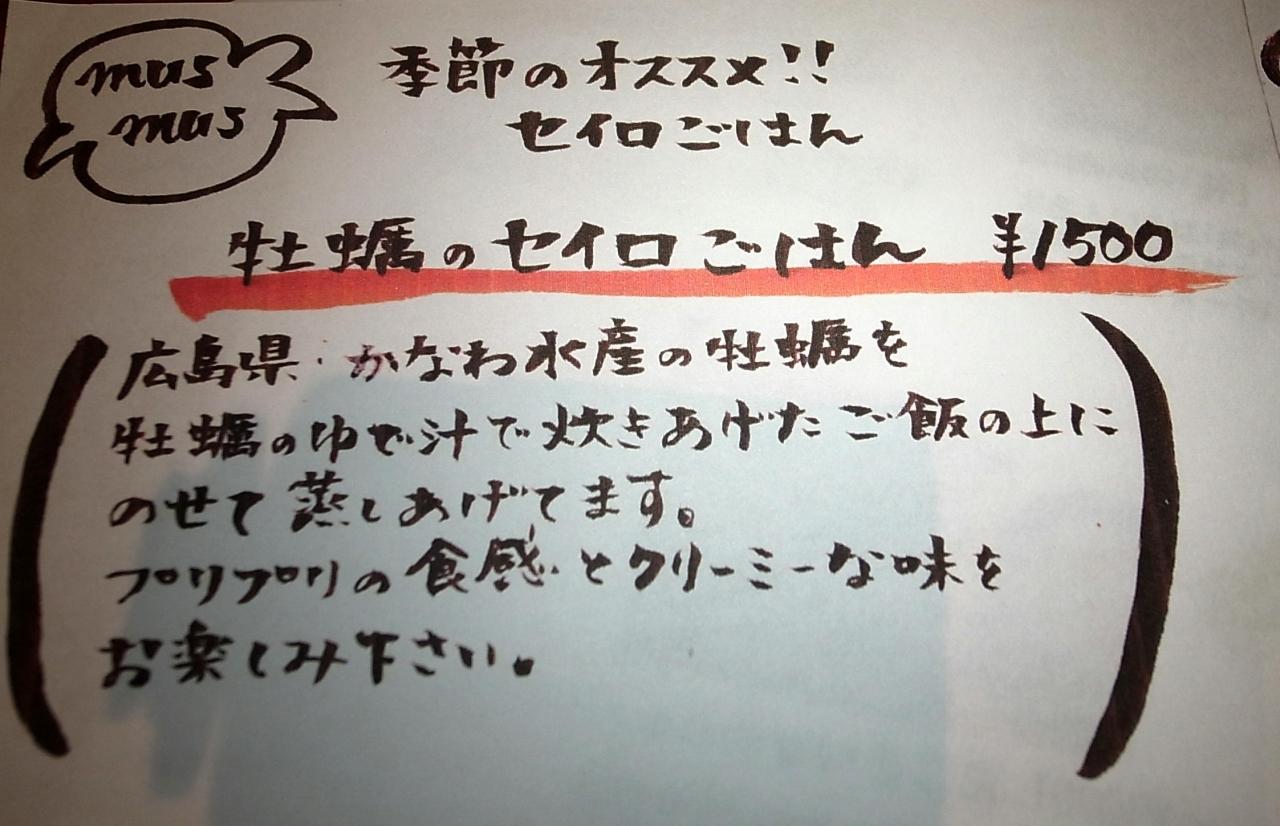 mus
mus
季節のオススメ!!
セイロごはん
牡蠣のセイロごはん ¥1500
(広島県・かなわ水産の牡蠣を
牡蠣のゆで汁で炊きあげたご飯の上に
のせて蒸しあげてます。
プリプリの食感とクリーミーな味を
お楽しみ下さい。)